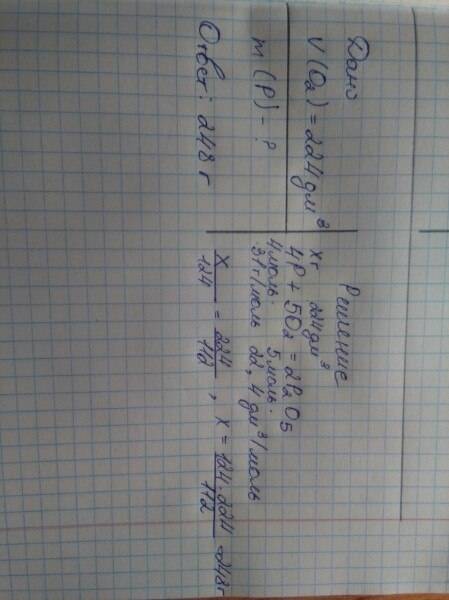 Дано
V(O₂) = 224 дм³
m (P) - ?
Ответ: 248 г
Решение
xг 224 дм³
4P + 5O₂ = 2P₂O₅
4 моль· 5 моль·
31г/моль 22,4 дм³/моль
x/124 = 224/112 , x = 124·224/112 = 248г